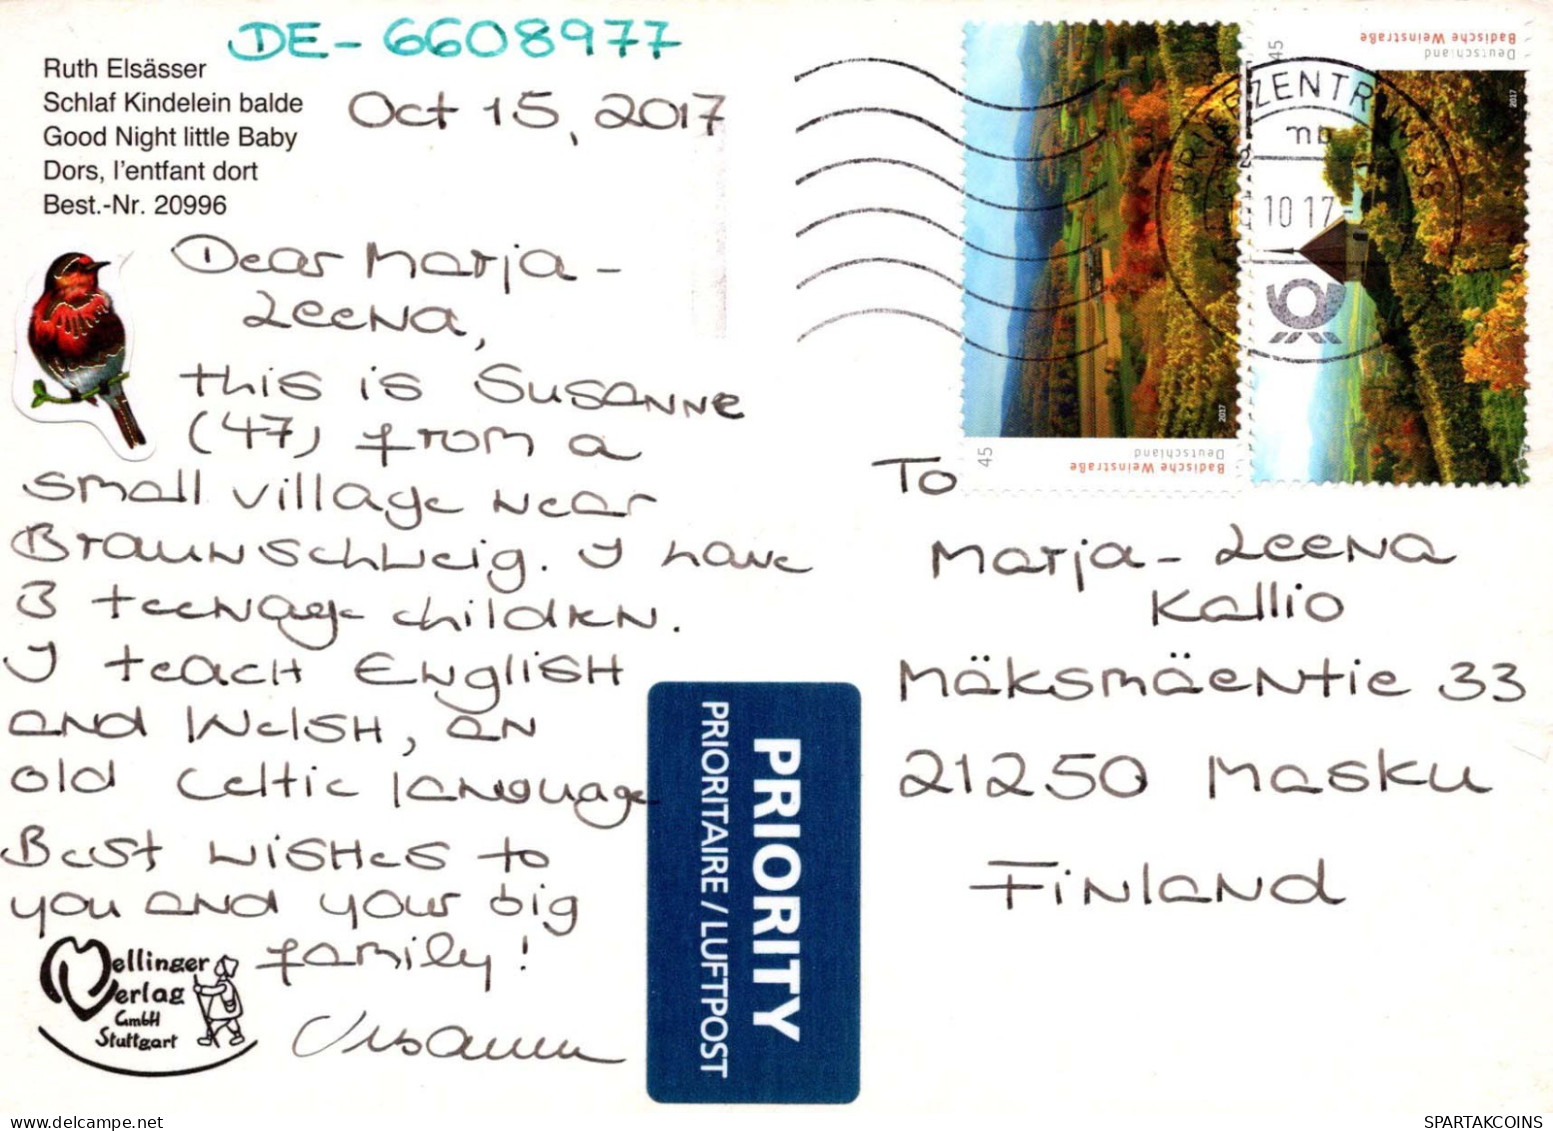 DE-6608977
Ruth Elsässer
Schlaf Kindelein balde
Good Night little Baby
Dors, l'entfant dort
Best.-Nr. 20996
Oct 15, 2017
Dear Marja-
Leena,
this is Susanne
(47) from a
small village near
Braunschweig. I have
3 teenage children.
I teach English
and Welsh, an
old Celtic language
Best wishes to
you and your big
family!
Susanne
Mellinger
Verlag
GmbH
Stuttgart
PRIORITY
PRIORITAIRE / LUFTPOST
45
Deutschland
Badische Weinstraße
2017
45
Deutschland
Badische Weinstraße
2017
BRIEFZENTRUM 38
10 17
To
Marja-Leena
Kallio
Mäksmäentie 33
21250 Masku
Finland
SPARTAKCOINS